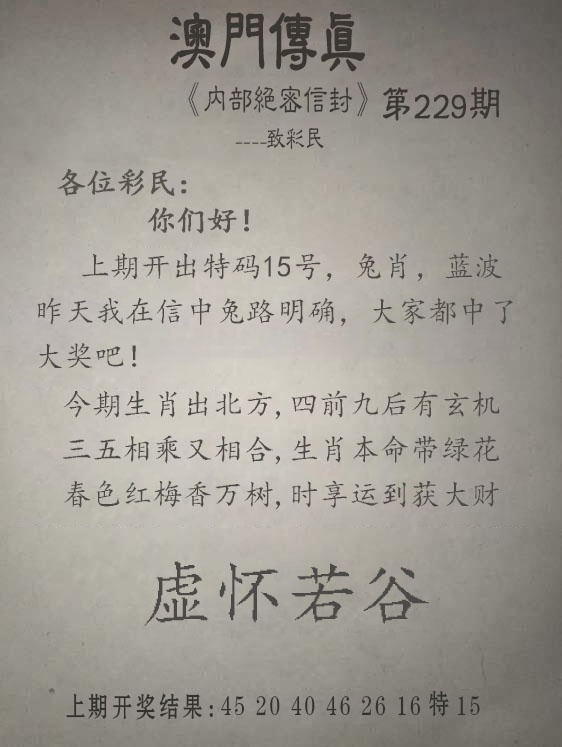 澳門傳真
《内部絕密信封》第229期
----致彩民
各位彩民：
你们好！
上期开出特码15号，兔肖，蓝波
昨天我在信中兔路明确，大家都中了
大奖吧！
今期生肖出北方,四前九后有玄机
三五相乘又相合,生肖本命带绿花
春色红梅香万树,时享运到获大财
虚怀若谷
上期开奖结果:45 20 40 46 26 16特15